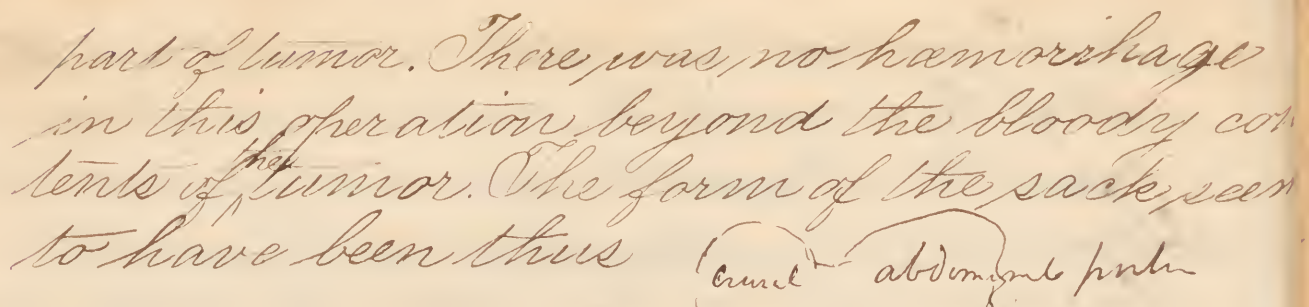 part of tumor. There was no hæmorrhage
in this operation beyond the bloody con
tents of the tumor. The form of the sack seem
to have been thus crural abdominal